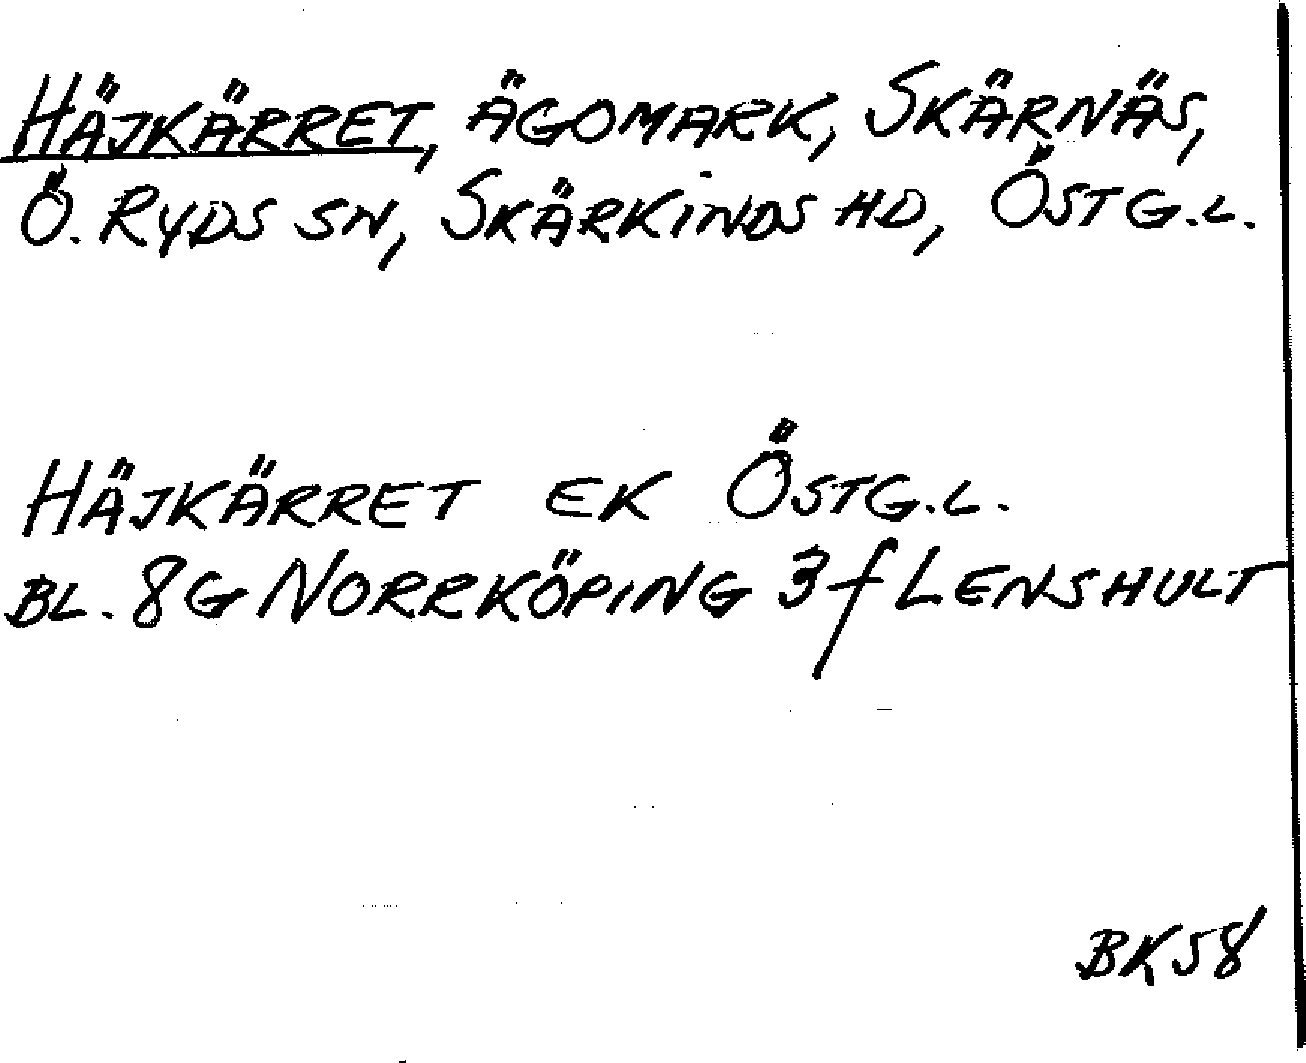 HÄJKÄRRET, ÄGOMARK, SKÄRNÄS,
Ö. RYDS SN, SKÄRKINDS HD, ÖSTG.L.
HÄJKÄRRET EK ÖSTG.L.
BL. 8G NORRKÖPING 3f LENSHULT
BK58